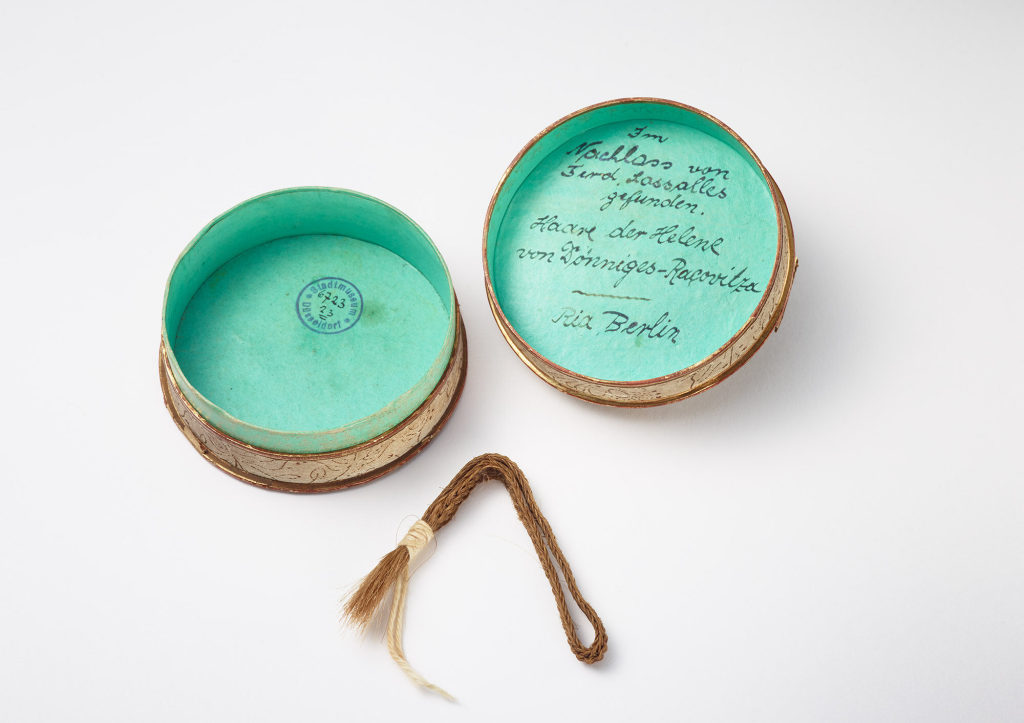 Stadtmuseum
Düsseldorf
23
Im
Nachlass von
Ferd. Lassalles
gefunden.
Haare der Helene
von Dönniges-Racovitza
Ria Berlin